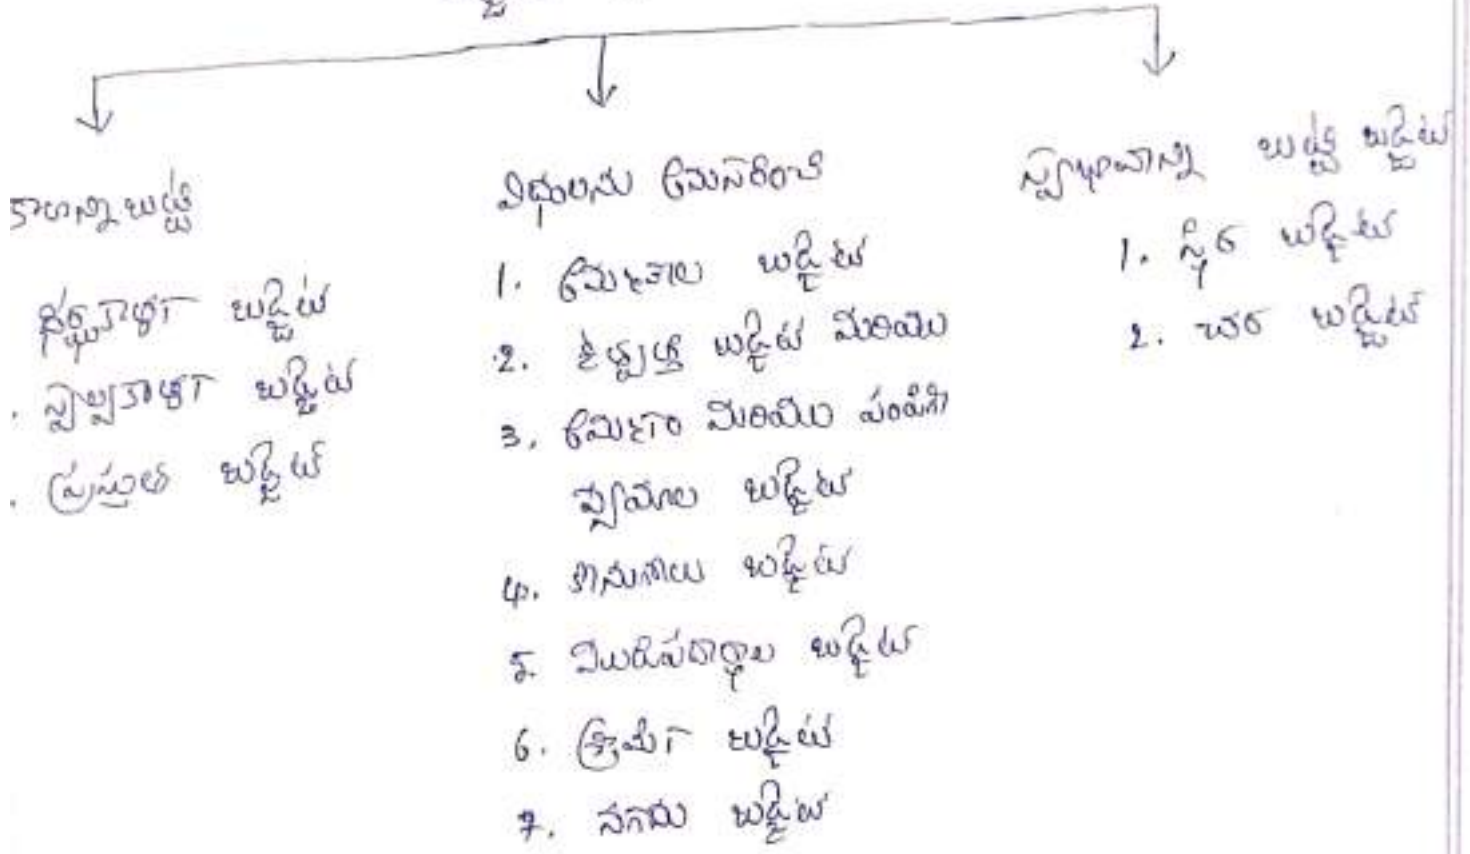 కాలాన్ని బట్టి
దీర్ఘకాలిక బడ్జెట్
స్వల్పకాలిక బడ్జెట్
ప్రస్తుత బడ్జెట్
విధులను అనుసరించి
1. అమ్మకాల బడ్జెట్
2. ఉత్పత్తి బడ్జెట్ మరియు
3. అమ్మకం మరియు పంపిణీ
వ్యయాల బడ్జెట్
4. కొనుగోలు బడ్జెట్
5. ముడిపదార్థాల బడ్జెట్
6. శ్రామిక బడ్జెట్
7. నగదు బడ్జెట్
స్వభావాన్ని బట్టి బడ్జెట్
1. స్థిర బడ్జెట్
2. చర బడ్జెట్